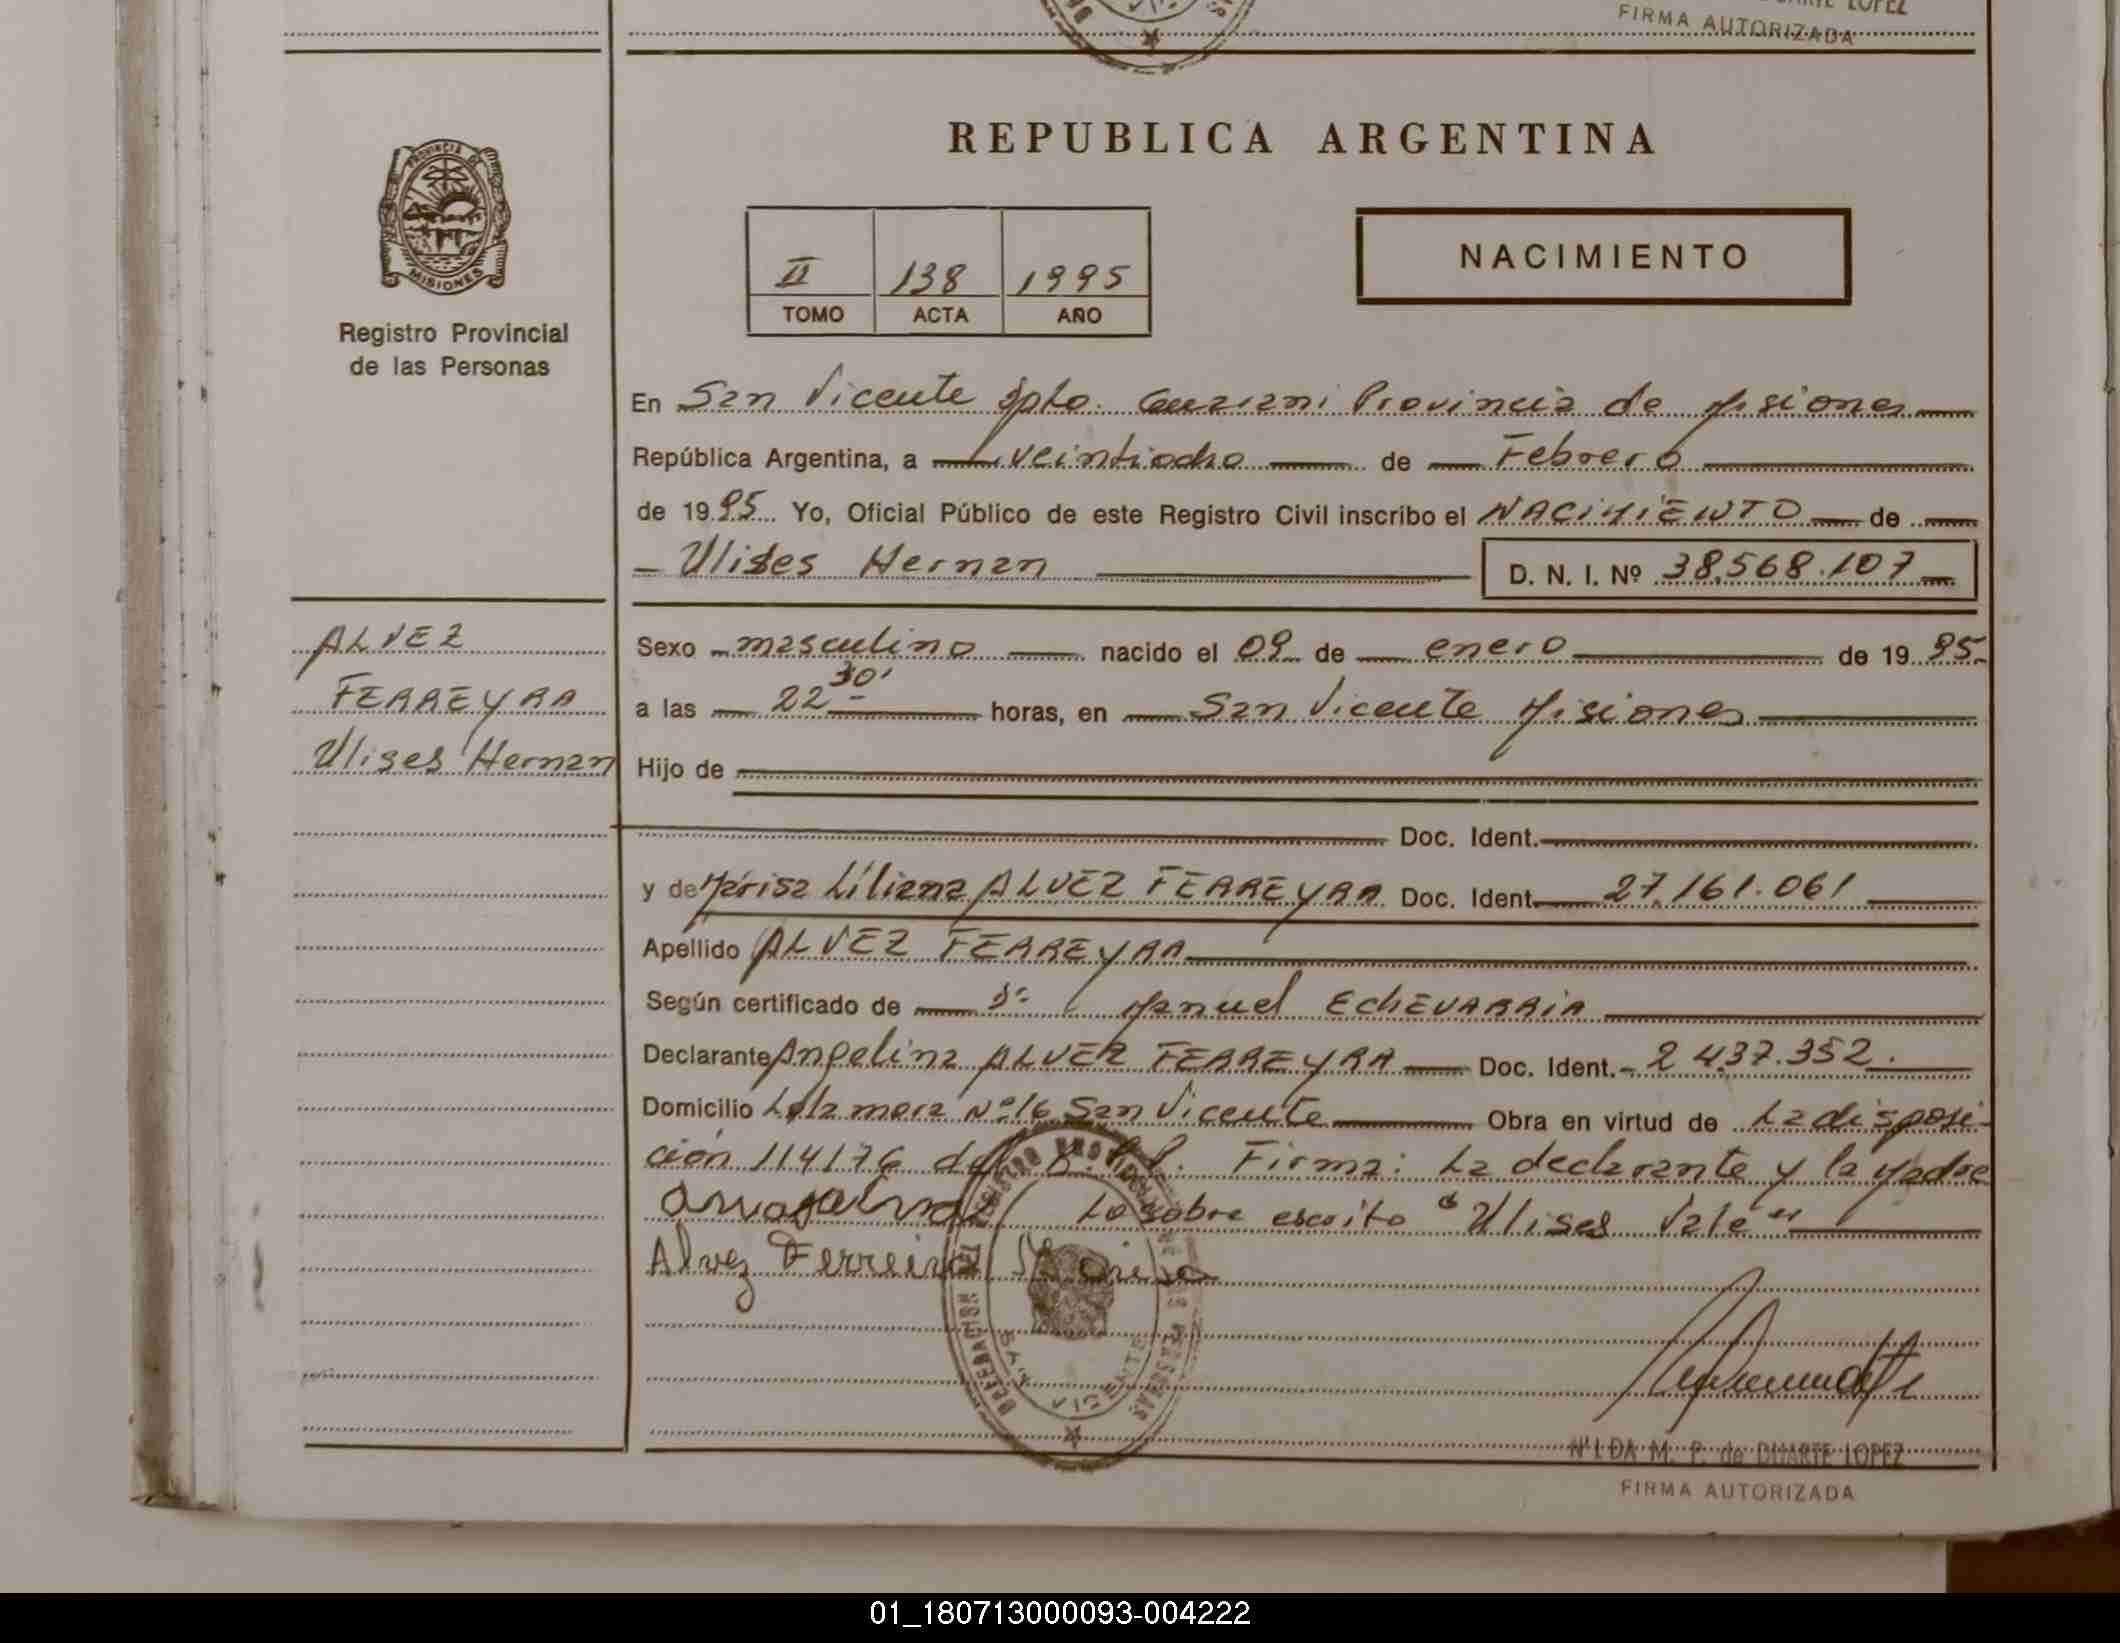 LOPEZ
FIRMA AUTORIZADA
REPUBLICA ARGENTINA
PROVINCIA DE
MISIONES
Registro Provincial
de las Personas
II 138 1995
TOMO ACTA AÑO
NACIMIENTO
En San Vicente Dpto. Guarani Provincia de Misiones
República Argentina, a veintiocho de Febrero
de 1995 Yo, Oficial Público de este Registro Civil inscribo el NACIMIENTO de
Ulises Hernan D. N. I. Nº 38.568.107
ALVEZ
FERREYRA
Ulises Hernan
Sexo masculino nacido el 09 de enero de 1995
a las 22 30' horas, en San Vicente Misiones
Hijo de
Doc. Ident.
y de Marisa Liliana ALVEZ FERREYRA Doc. Ident. 27.161.061
Apellido ALVEZ FERREYRA
Según certificado de Dr. Manuel ECHEVARRIA
Declarante Angelina ALVEZ FERREYRA Doc. Ident. 2.437.352.
Domicilio Nº 16 San Vicente Obra en virtud de La disposi-
ción 114176 Firma: La declarante y la Madre
Lo sobre escrito "Ulises Vale"
Alvez Ferreira Marisa
VICENTE
Nº LDA M. P. de DUARTE LOPEZ
FIRMA AUTORIZADA
01_180713000093-004222